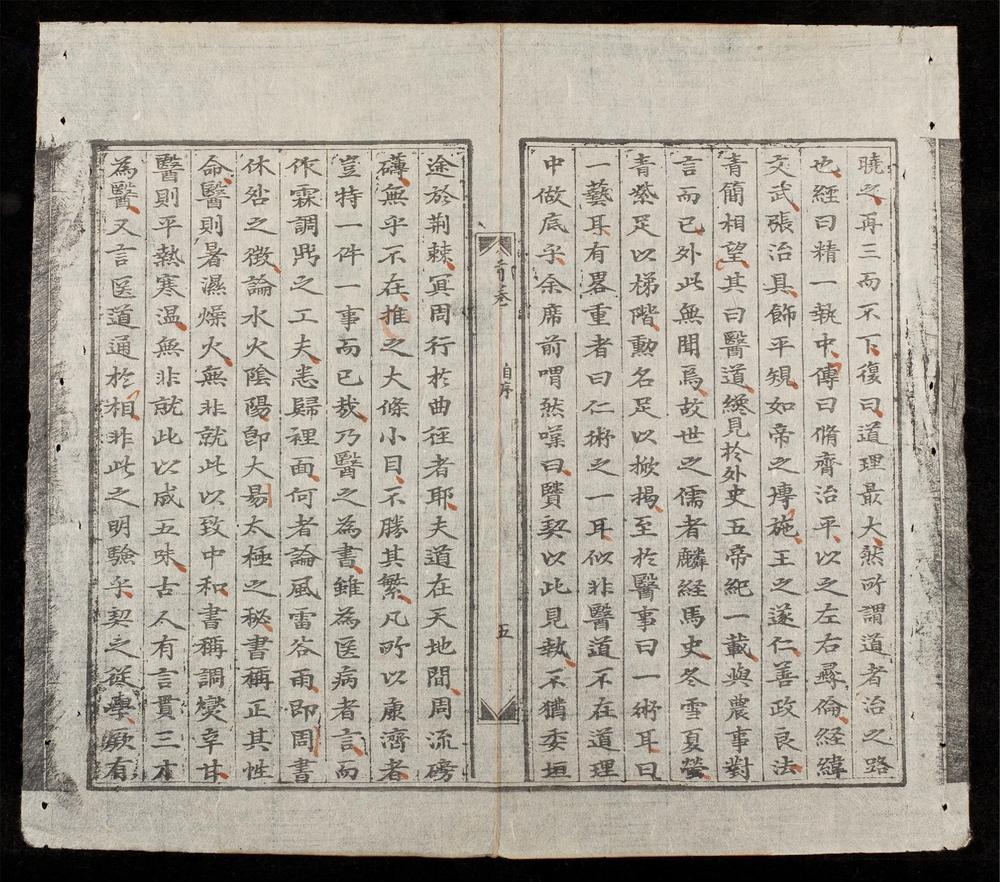 曉之再三而不下復曰道理最大然所謂道者治之路
也經曰精一執中傳曰脩齊治平以之左右尋倫經緯
文武張治具飾平䂓如帝之博施王之遂仁善政良法
青簡相望其曰醫道纔見於外史五帝紀一載與農事對
言而已外此無聞焉故世之儒者麟經馬史冬雪夏螢
青紫足以梯階勳名足以掀揭至於醫事曰一術耳曰
一藝耳有畧重者曰仁術之一耳似非醫道不在道理
中做底乎余席前喟然嘆曰賢契以此見執不猶委垣
首卷
自序
五
途於荆棘冥周行於曲徑者耶夫道在天地間周流磅
礴無乎不在推之大條小目不勝其繁凡所以康濟者
豈特一件一事而已哉乃醫之為書雖為医病者言而
作霖調鼎之工夫悉歸裡面何者論風雷谷雨即周書
休咎之徴論水火陰陽即大昜太極之秘書稱正其性
命醫則暑濕燥火無非就此以致中和書稱調爕辛甘
醫則平熱寒温無非就此以成五味古人有言貫三才
為醫又言医道通於相非此之明驗乎契之從學厥有